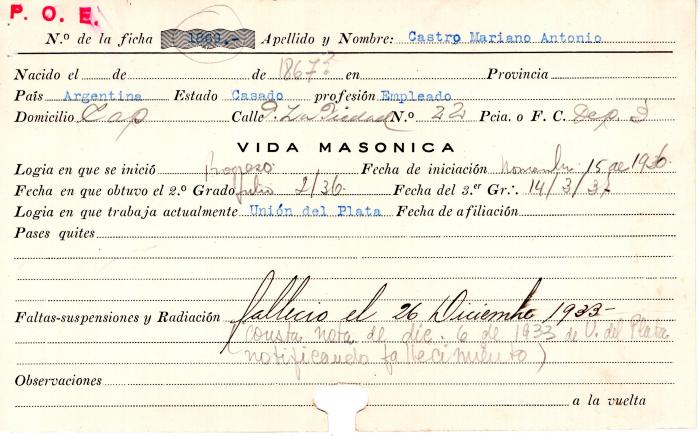 P. O. E.
N.º de la ficha 1869.- Apellido y Nombre: Castro Mariano Antonio
Nacido el de de 1867? en Provincia
País Argentina Estado Casado profesión Empleado
Domicilio Cap Calle P. La Piedad N.º 22 Pcia. o F. C. Dep. 3
VIDA MASONICA
Logia en que se inició Progreso Fecha de iniciación 15 de 1936
Fecha en que obtuvo el 2.º Grado Julio 2/36 Fecha del 3.er Gr.·. 14/3/3
Logia en que trabaja actualmente Unión del Plata Fecha de afiliación
Pases quites
Faltas-suspensiones y Radiación fallecio el 26 Diciembre 1933-
(consta nota de dic. 6 de 1933 de U. del Plata
notificando fallecimiento)
Observaciones
a la vuelta